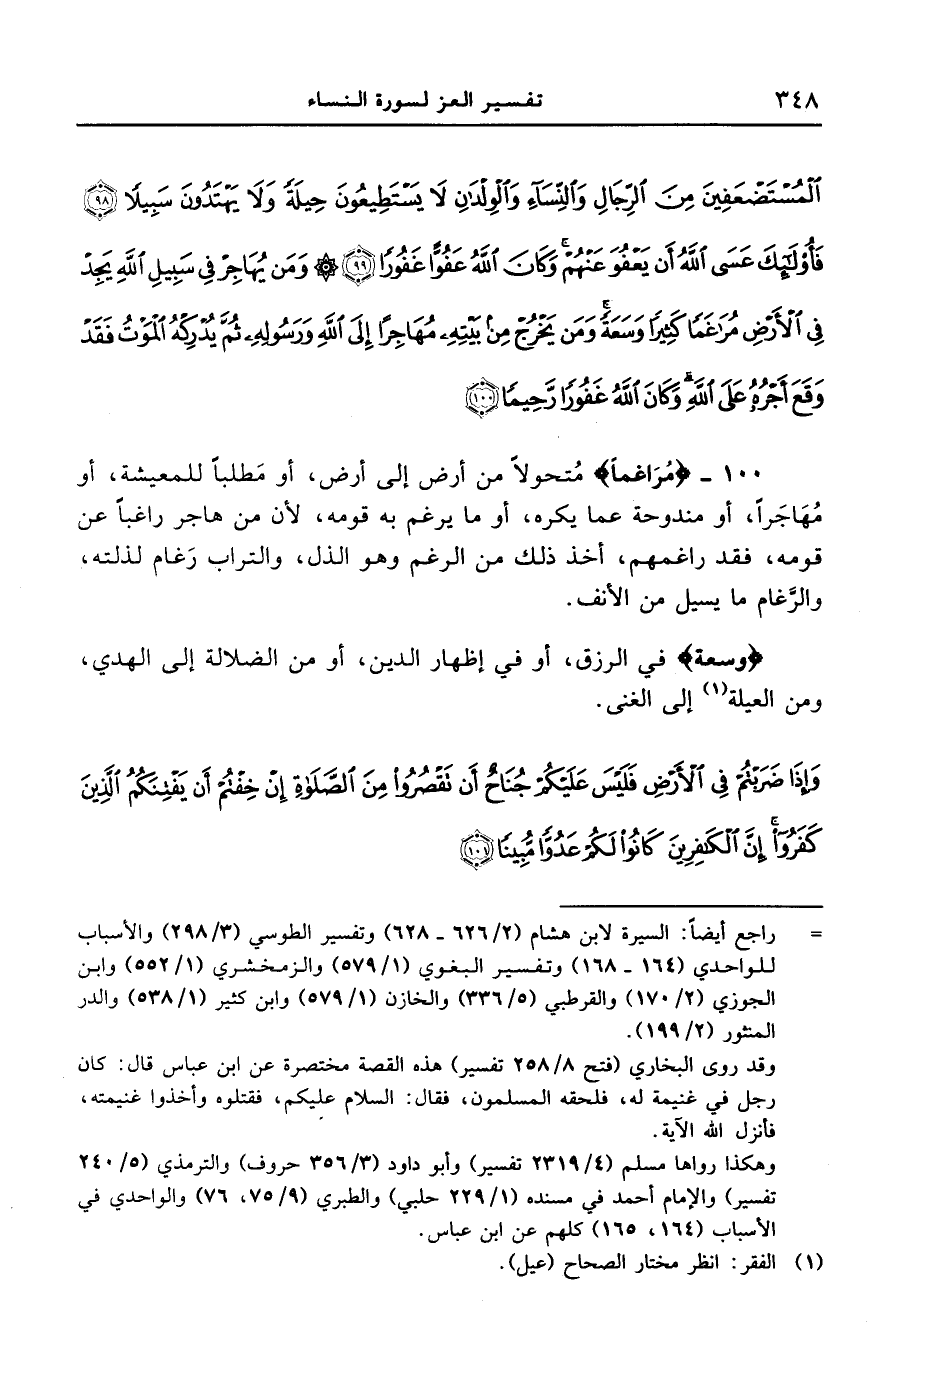 ٣٤٨ تفسير العز لسورة النساء
ٱلْمُسْتَضْعَفِينَ مِنَ ٱلرِّجَالِ وَٱلنِّسَآءِ وَٱلْوِلْدَٰنِ لَا يَسْتَطِيعُونَ حِيلَةً وَلَا يَهْتَدُونَ سَبِيلًا ٩٨
فَأُوْلَٰٓئِكَ عَسَى ٱللَّهُ أَن يَعْفُوَ عَنْهُمْ ۚ وَكَانَ ٱللَّهُ عَفُوًّا غَفُورًا ٩٩ ۞ وَمَن يُهَاجِرْ فِى سَبِيلِ ٱللَّهِ يَجِدْ
فِى ٱلْأَرْضِ مُرَٰغَمًا كَثِيرًا وَسَعَةً ۚ وَمَن يَخْرُجْ مِنۢ بَيْتِهِۦ مُهَاجِرًا إِلَى ٱللَّهِ وَرَسُولِهِۦ ثُمَّ يُدْرِكْهُ ٱلْمَوْتُ فَقَدْ
وَقَعَ أَجْرُهُۥ عَلَى ٱللَّهِ ۗ وَكَانَ ٱللَّهُ غَفُورًا رَّحِيمًا ١٠٠
١٠٠ - ﴿مُرَاغماً﴾ مُتحولاً من أرض إلى أرض، أو مَطلباً للمعيشة، أو
مُهَاجَراً، أو مندوحة عما يكره، أو ما يرغم به قومه، لأن من هاجر راغباً عن
قومه، فقد راغمهم، أخذ ذلك من الرغم وهو الذل، والتراب رَغام لذلته،
والرَّغام ما يسيل من الأنف.
﴿وسعة﴾ في الرزق، أو في إظهار الدين، أو من الضلالة إلى الهدي،
ومن العيلة(١) إلى الغنى.
وَإِذَا ضَرَبْتُمْ فِى ٱلْأَرْضِ فَلَيْسَ عَلَيْكُمْ جُنَاحٌ أَن تَقْصُرُواْ مِنَ ٱلصَّلَوٰةِ إِنْ خِفْتُمْ أَن يَفْتِنَكُمُ ٱلَّذِينَ
كَفَرُوٓاْ ۚ إِنَّ ٱلْكَٰفِرِينَ كَانُواْ لَكُمْ عَدُوًّا مُّبِينًا ١٠١
= راجع أيضاً: السيرة لابن هشام (٢/ ٦٢٦ - ٦٢٨) وتفسير الطوسي (٣/ ٢٩٨) والأسباب
للواحدي (١٦٤ - ١٦٨) وتفسير البغوي (١/ ٥٧٩) والزمخشري (١/ ٥٥٢) وابن
الجوزي (٢/ ١٧٠) والقرطبي (٥/ ٣٣٦) والخازن (١/ ٥٧٩) وابن كثير (١/ ٥٣٨) والدر
المنثور (٢/ ١٩٩).
وقد روى البخاري (فتح ٨/ ٢٥٨ تفسير) هذه القصة مختصرة عن ابن عباس قال: كان
رجل في غنيمة له، فلحقه المسلمون، فقال: السلام عليكم، فقتلوه وأخذوا غنيمته،
فأنزل الله الآية.
وهكذا رواها مسلم (٤/ ٢٣١٩ تفسير) وأبو داود (٣/ ٣٥٦ حروف) والترمذي (٥/ ٢٤٠
تفسير) والإمام أحمد في مسنده (١/ ٢٢٩ حلبي) والطبري (٩/ ٧٥، ٧٦) والواحدي في
الأسباب (١٦٤، ١٦٥) كلهم عن ابن عباس.
(١) الفقر: انظر مختار الصحاح (عيل).